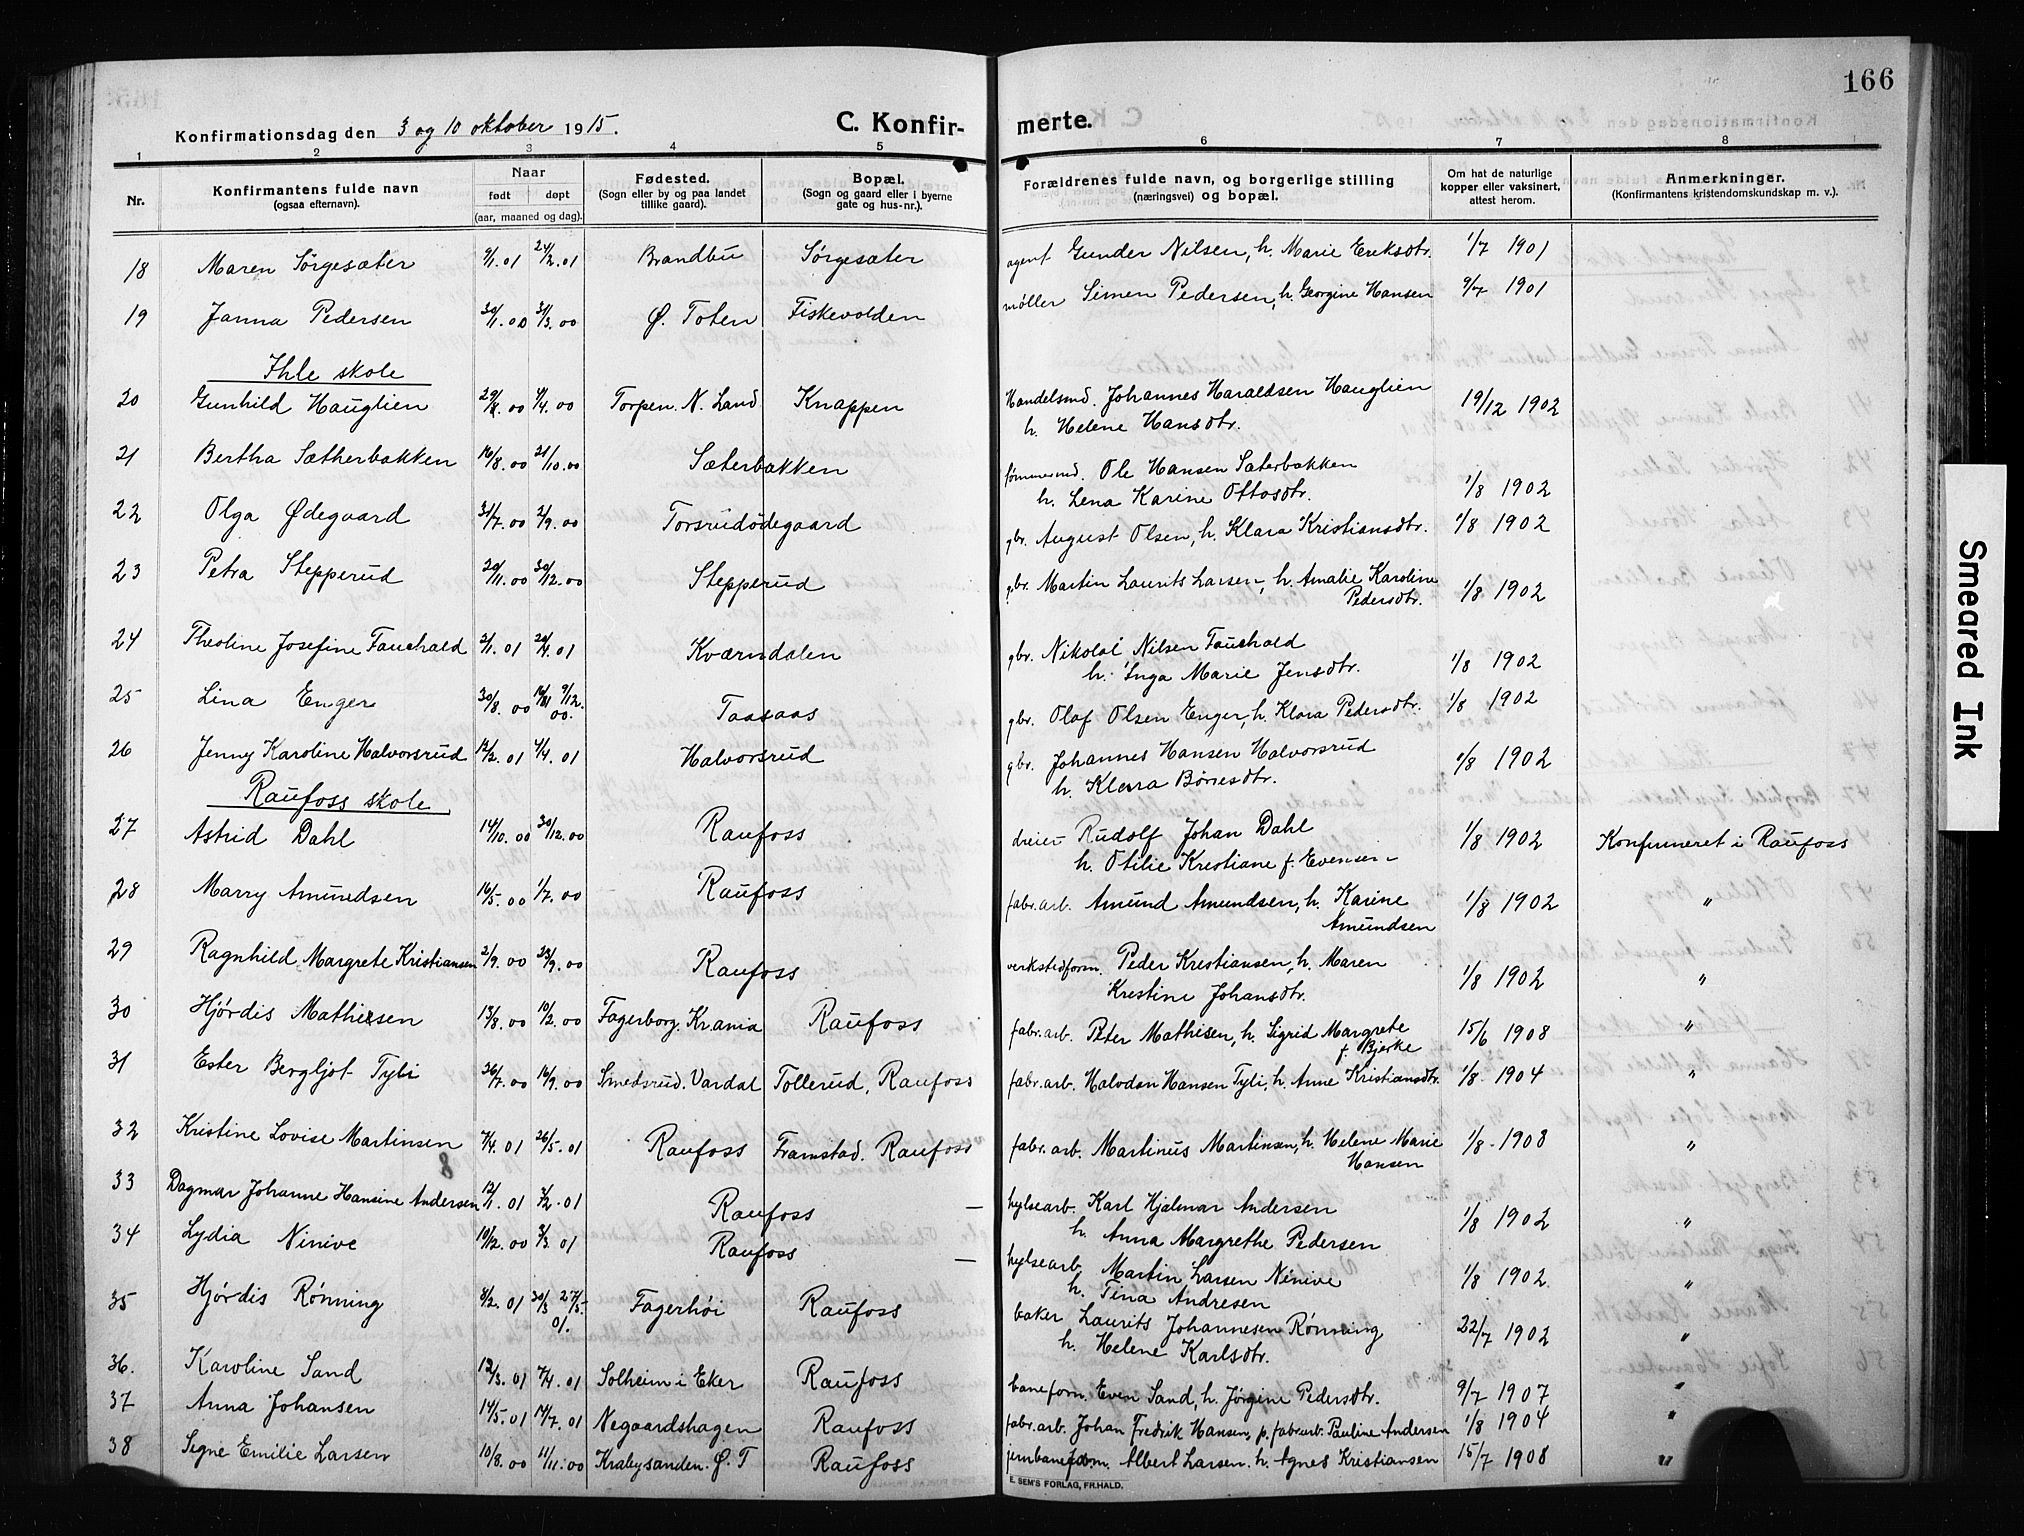 166
Konfirmationsdag den 3 og 10 oktober 1915. C. Konfirmerte.
1 2 3 4 5 6 7 8
Nr. Konfirmantens fulde navn (ogsaa efternavn). Naar født døpt (aar, maaned og dag). Fødested. (Sogn eller by og paa landet tillike gaard). Bopæl. (Sogn og gaard eller i byerne gate og hus-nr.). Forældrenes fulde navn, og borgerlige stilling (næringsvei) og bopæl. Om hat de naturlige kopper eller vaksinert, attest herom. Anmerkninger. (Konfirmantens kristendomskundskap m. v.).
18 Maren Sørgesæter 9/1.01 24/2.01 Brandbu Sørgesæter agent Gunder Nilsen, h. Marie Eriksdtr. 1/7 1901
19 Janna Pedersen 30/1.00 31/3.00 Ø. Toten Fiskevolden møller Simen Pedersen, h. Georgine Hansen 9/7 1901
Ihle skole
20 Gunhild Hauglien 4/4.00 Torpen. N. Land Knappen Handelsmd. Johannes Haraldsen Hauglien
h. Helene Hansdtr. 19/12 1902
21 Bertha Sætherbakken 16/8.00 21/10.00 Sæterbakken tømmermd. Ole Hansen Sæterbakken
h. Lena Karine Ottosdtr. 1/8 1902
22 Olga Ødegaard 31/7.00 2/9.00 Torsrudødegaard gbr. August Olsen, h. Klara Kristiansdtr. 1/8 1902
23 Petra Stepperud 20/11.00 30/12.00 Stepperud gbr. Martin Laurits Larsen, h. Amalie Karoline
Pedersdtr. 1/8 1902
24 Theoline Josefine Fauchald 2/1.01 Kværndalen gbr. Nikolai Nilsen Fauchald
h. Inga Marie Jensdtr. 1/8 1902
25 Lina Enger 30/8.00 9/12.00. Taasaas gbr. Olaf Olsen Enger, h. Klara Pedersdtr. 1/8 1902
26 Jenny Karoline Halvorsrud 12/2.01 4/4.01 Halvorsrud gbr. Johannes Hansen Halvorsrud
h. Klara Børresdtr. 1/8 1902
Raufoss skole
27 Astrid Dahl 14/10.00 30/12.00 Raufoss dreier Rudolf Johan Dahl
h. Otilie Kristiane f. Evensen 1/8 1902 Konfirmeret i Raufoss
28 Marry Amundsen 16/5.00 1/7.00 Raufoss fabr.arb. Amund Amundsen, h. Karine
Amundsen 1/8 1902 "
29 Ragnhild Margrete Kristiansen 2/9.00 23/9.00 Raufoss verkstedform. Peder Kristiansen, h. Maren
Kristine Johansdtr. 1/8 1902 "
30 Hjørdis Mathisen 13/8.00 10/12.00 Fagerborg. Krania Raufoss fabr. arb. Peter Mathisen, h. Sigrid Margrete
f. Bjerke 15/6 1908 "
31 Ester Bergljot Tyli 26/7.00 16/9.00 Smedsrud. Vardal Tollerud, Raufoss fabr. arb. Halvdan Hansen Tyli, h. Anne Kristiansdtr. 1/8. 1904 "
32 Kristine Lovise Martinsen 7/4.01 26/5.01 Raufoss Framstad. Raufoss fabr. arb. Martinus Martinsen, h. Helene Marie
Hansen 1/8 - 1908 "
8
33 Dagmar Johanne Hansine Andersen 12/1.01 3/2.01 Raufoss — hylsearb. Karl Hjalmar Andersen
h. Anna Margrethe Pedersen 1/8 1902 "
34 Lydia Ninive 10/12.00 3/3.01 Raufoss — hylsearb. Martin Larsen Ninive
h. Tina Andresen 1/8 1902. "
35 Hjørdis Rønning 8/2.01 30/3 27/5.01. Fagerhøi Raufoss baker Laurits Johannesen Rønning
h. Helene Karlsdtr. 22/7 1902 "
36. Karoline Sand 12/3.01 7/4.01 Solheim i Eker Raufoss baneform. Even Sand, h. Jørgine Pedersdtr. 9/7 1907 "
37 Anna Johansen 14/5.01 14/7.01 Negaardshagen Raufoss fabr. arb. Johan Fredrik Hansen, p. fabr.arb. Pauline Andersen 1/8 1904 "
38 Signe Emilie Larsen 10/8.00 11/11.00 Krabysanden. Ø. T Raufoss jernbaneform. Albert Larsen. h. Agnes Kristiansen 15/7 1908 "
E. SEM'S FORLAG, FR.HALD.
Smeared Ink